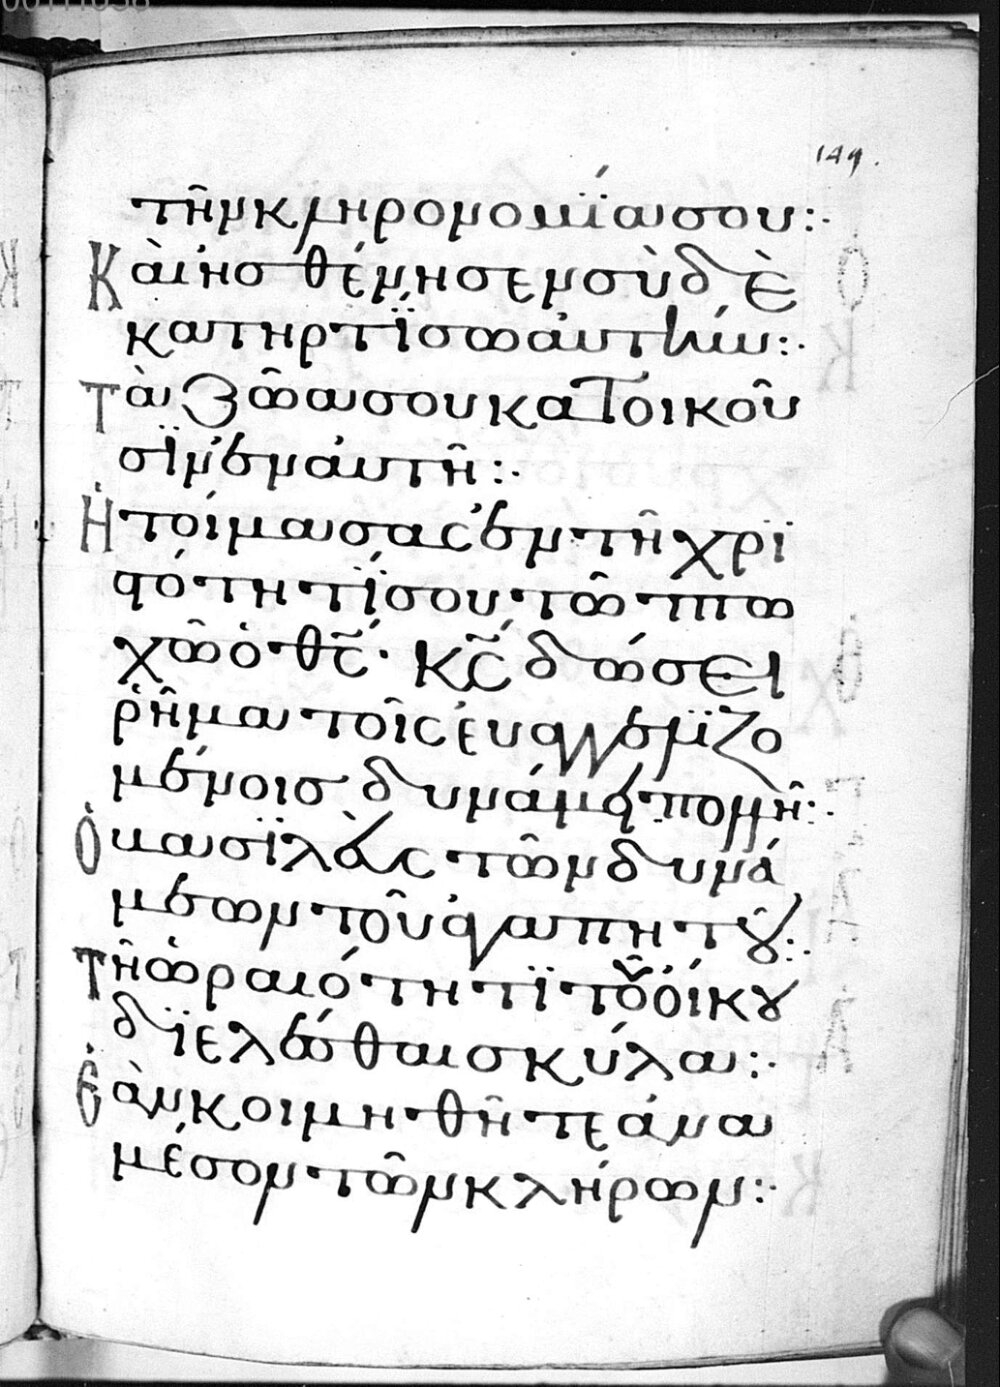 149.
τὴν κληρονομΐα σου:·
Καὶ ἠσθένησεν σὺ δὲ
κατηρτΐσω ἀυτήν:·
Τὰ ζῶα σου κατοικοῦ
σϊν ἐν ἀυτῆ:·
Ἡτοίμασας ἐν τῆ χρϊ
στότητΐ σου· τῶ πτω
χῶ ὁ θς̃· κς̃ δώσει
ῥῆμα τοῖς ἐυαγγελϊζο
μένοις δυνάμει πολλῆ:·
Ὁ βασϊλεὺς τῶν δυνά
μεων τοῦ ἀγαπητοῦ:·
Τῆ ὡραιότητϊ τοῦ ὀίκου
δϊελέσθαι σκύλα:·
Ἐὰν κοιμηθῆτε ἀνα
μέσον τῶν κλήρων:·